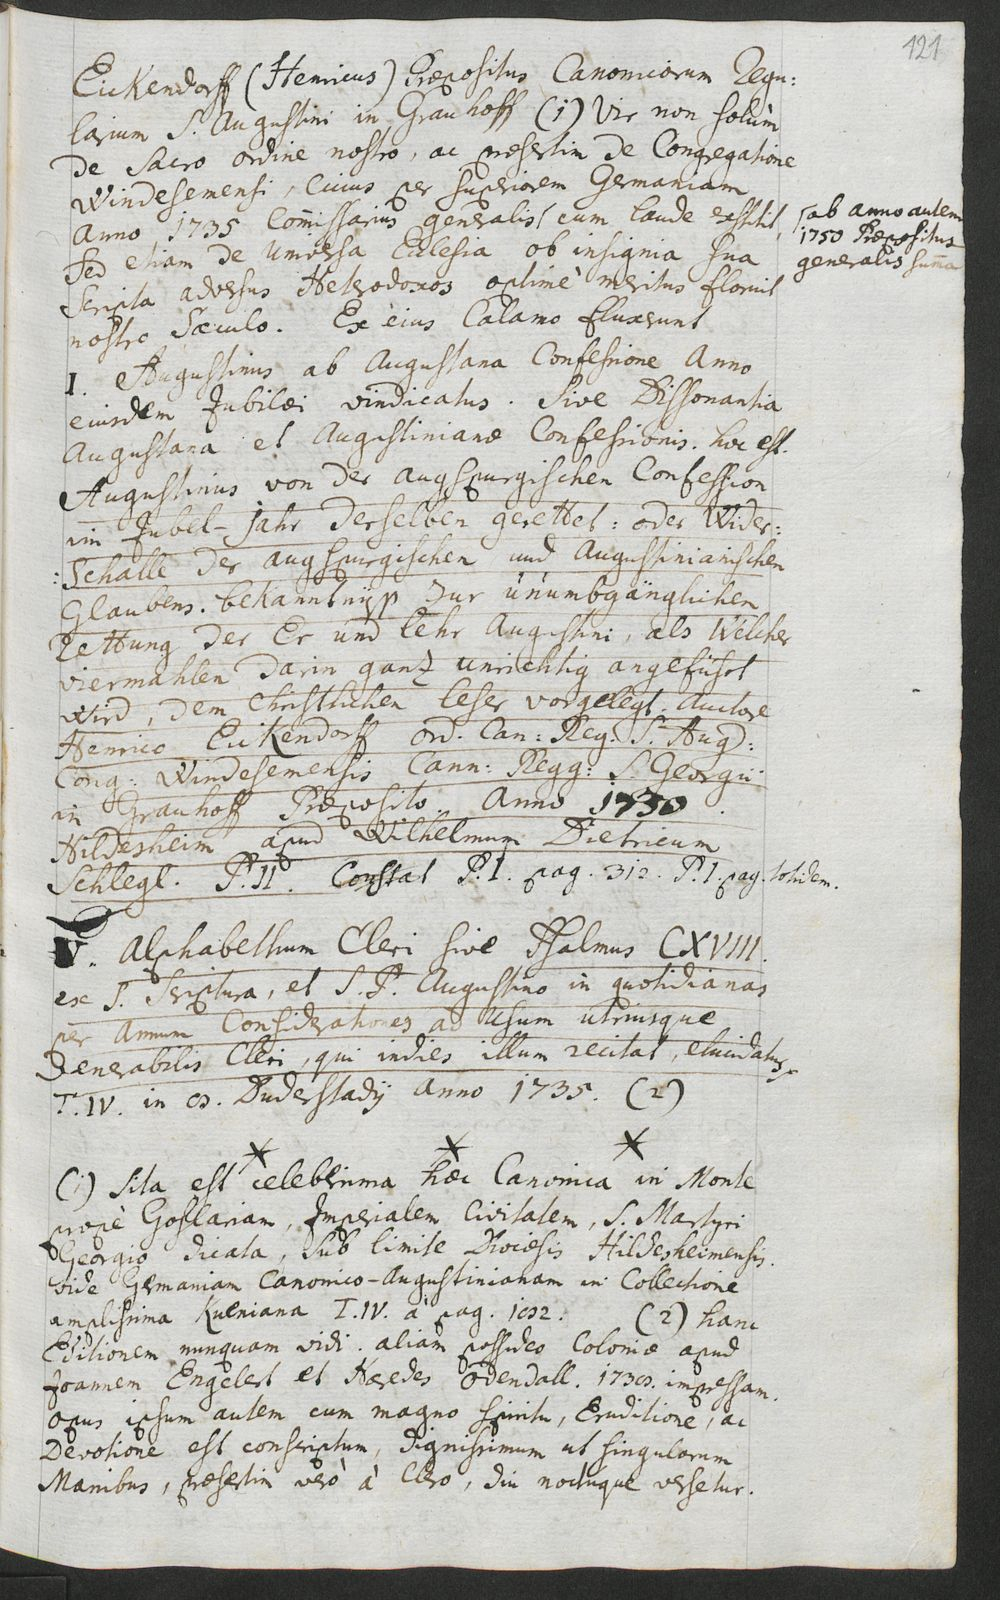 121
Eickendorff (Henricus) Præpositus Canonicorum Regu:
larium S. Augustini in Grauhoff (1) Vir non solùm
de Sacro ordine nostro, ac præsertim de Congregatione
Windesemensi, cuius per superiorem Germaniam
Anno 1735 Com̄issarius generalis ſ cum laude exstitit,
ſ ab anno autem
1750 Præpositus
generalis sum̄a
sed etiam de Universa Ecclesia ob insignia sua
Scripta adversus Heterodoxos optimè meritus floruit
nostro Sæculo. Ex eius Calamo fluxerunt
I. Augustinus ab Augustana Confessione Anno
eiusdem Jubilæi vindicatus. Sive Dissonantia
Augustana et Augustinianæ Confessionis. hoc est.
Augustinus von der augspurgischen Confession
im Jubel-Jahr derselben gerettet: oder Wider:
:Schall der augspurgischen und Augustinianischen
Glaubens.bekanntnüss zur unumbgänglichen
Rettung der Er und lehr Augustini, als Welcher
viermahlen darin ganz unrichtig angeführt
wird, dem Christlichen leser vorgelegt. Auctore
Henrico Eickendorff ord. Can: Reg: S. Aug:
Cong: Windesemensis Cann: Regg: S. Georgii
in Grauhoff Præposito. Anno 1730.
Hildesheim apud Wilhelmum Dietricum
Schlegl. P. II. Constat P. I. pag. 312. P. I. pag. totidem.
V. Alphabethum Cleri sive Psalmus CXVIII.
ex S. Scriptura, et S. P. Augustino in quotidianas
per Annum Considerationes ad Usum utriusque
Venerabilis Cleri, qui indies illum recitat, elucidatus.
T. IV. in 8. Duderstadij Anno 1735. (2)
(1) Sita est celeberrima hæc Canonica in Monte
propè Goslariam, Imperialem Civitatem, S. Martyri
Georgio dicata, sub limite Diœcesis Hildesheimensis.
vide Germaniam Canonico-Augustinianam in Collectione
amplissima Kueniana T. IV. à pag. 182. (2) hanc
Editionem nunquam vidi. aliam possideo Coloniæ apud
Joannem Engelert et Hæredes Odendall. 1738. impressam.
opus ipsum autem cum magno Spiritu, Eruditione, ac
Devotione est conscriptum, dignissimum ut singulorum
Manibus, præsertim verò à Clero, diu noctuque versetur.